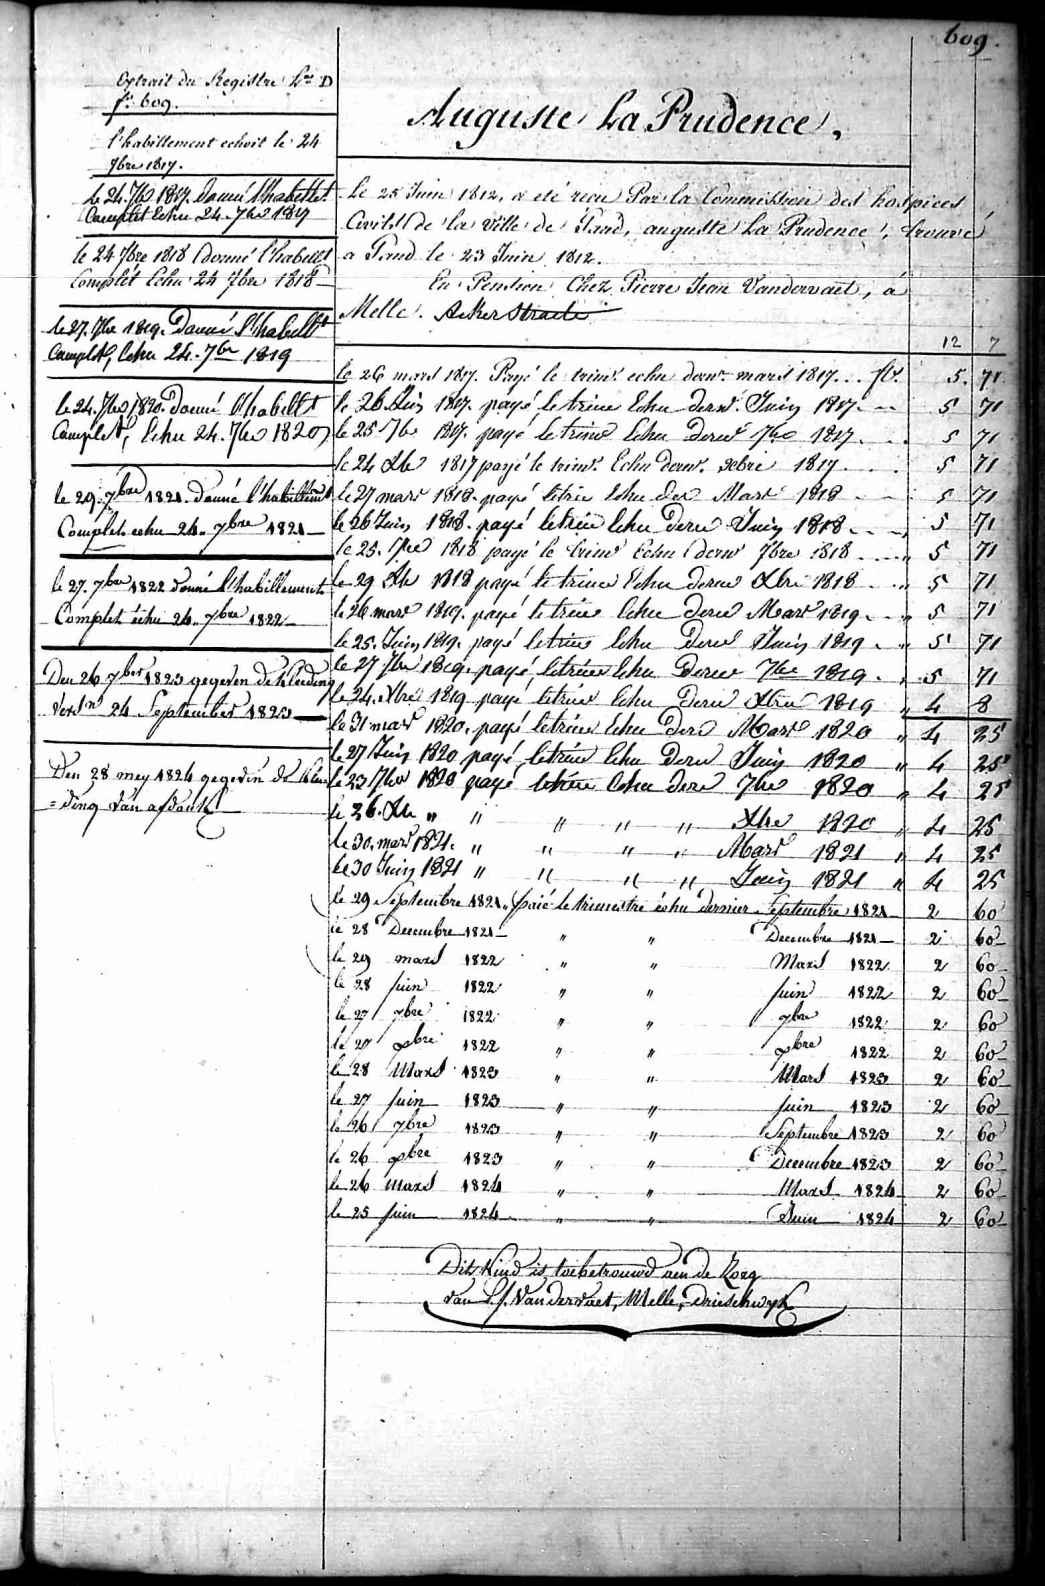 609.
Extrait du Registre L.re D
f.o 609.
l'habillement echoit le 24
7bre 1817.
le 24. 7b.e 1817. Donné l'habillt.
Complet Echu 24. 7bre 1817
le 24 7bre 1818 donné l'habillt
Complét Echu 24 7bre 1818
le 27. 7bre 1819. Donné l'habillt
Complet, Echu 24. 7bre 1819
le 24. 7bre 1820. Donné l'habillt
Complet, Echu 24. 7bre 1820
le 29. 7bre 1821. donné l'habillemt
Complet echu 24. 7bre 1821
le 27. 7bre 1822 donné l'habillement
Complet échu 24. 7bre 1822
Den 26 7ber 1823 gegeven de kleeding
24 September 1823
Den 28 mey 1824 gegevin de klee
=ding van afdank
Auguste La Prudence.
Le 25 Juin 1812, a eté recu Par la Commission des hospices
Civils de la Ville de Gand, auguste La Prudence, trouvé
a Gand le 23 Juin 1812.
En Pension Chez Pierre Jean Vandervaet, á
Melle. Akkerstraete
12 7
le 26 mars 1817. Payé le trimr. echu dernr. mars 1817... fl. 5. 71
le 26 Juin 1817. payé le trime Echu dernr. Juin 1817. 5 71
le 25 7b 1817. payé le trime Echu dernr 7bre 1817. 5 71
le 24 Xbe 1817 payé le trimr. Echu dernr. xbre 1817. 5 71
le 27 mars 1818. payé le trie Echu der Mars 1818 5 71
le 26 Juin 1818. payé le trie Echu dere Juin 1818. 5 71
le 25. 7bre 1818 payé le trimr Echu dernr 7bre 1818 5 71
le 29 Xbe 1818 payé le trime Echu derne Xbre 1818 " 5 71
le 26 mars 1819. payé le trie Echu dere Mars 1819. " 5 71
le 25. Juin 1819. payé le trie Echu Dere Juin 1819 " 5 71
le 27 7bre 1819. payé le trie Echu Dere 7bre 1819. " 5 71
le 24. Xbre 1819 payé le trie Echu Dere Xbre 1819 " 4 8
le 31 mars 1820. payé le trie Echu Dere Mars 1820 " 4 25
le 27 Juin 1820 payé le trie Echu Dere Juin 1820 " 4 25
le 23 7bre 1820 payé le trie Echu dere 7bre 1820 " 4 25
le 26. Xbe " " " " " Xbre 1820 " 4 25
le 30. mars 1821. " " " " Mars 1821 " 4 25
le 30 Juin 1821 " " " " Juin 1821 " 4 25
le 29 Septembre 1821. paié le trimestre échu dernier Septembre 1821 2 60
le 28 Decembre 1821 " " Decembre 1821 2 60
le 29 mars 1822 " " Mars 1822 2 60
le 28 juin 1822 " " juin 1822 2 60
le 27 7bre 1822 " " 7bre 1822 2 60
le 27 xbre 1822 " " xbre 1822 2 60
le 28 Mars 1823 " " Mars 1823 2 60
le 27 juin 1823 " " juin 1823 2 60
le 26 7bre 1823 " " Septembre 1823 2 60
le 26 xbre 1823 " " Decembre 1823 2 60
le 26 Mars 1824 " " Mars 1824 2 60
le 25 juin 1824 " " Juin 1824 2 60
Dits Kind is toebetrouwd aen de Zorg
van P. J. Vandervaet, Melle, Drieschwyk